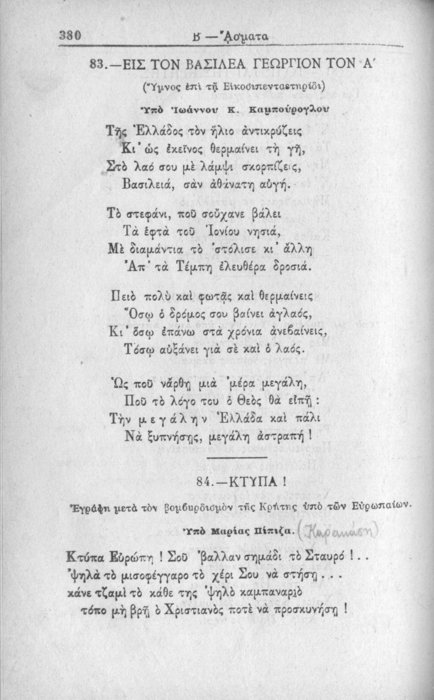 380 Β — ᾌσματα
83.—ΕΙΣ ΤΟΝ ΒΑΣΙΛΕΑ ΓΕΩΡΓΙΟΝ ΤΟΝ Α΄
(Ὕμνος ἐπὶ τῇ Εἰκοσιπενταετηρίδι)
Ὑπὸ Ἰωάννου Κ. Καμπούρογλου
Τῆς Ἑλλάδος τὸν ἥλιο ἀντικρύζεις
Κι᾿ ὡς ἐκεῖνος θερμαίνει τὴ γῆ,
Στὸ λαό σου μὲ λάμψι σκορπίζεις,
Βασιλειά, σὰν ἀθάνατη αὐγή.
Τὸ στεφάνι, ποῦ σοὔχανε βάλει
Τὰ ἑφτὰ τοῦ Ἰονίου νησιά,
Μὲ διαμάντια τὸ ᾿στόλισε κι᾿ ἄλλη
᾿Απ᾿ τὰ Τέμπη ἐλευθέρα δροσιά.
Πειὸ πολὺ καὶ φωτᾷς καὶ θερμαίνεις
Ὅσῳ ὁ δρόμος σου βαίνει ἀγλαός,
Κι᾿ ὅσῳ ἐπάνω στὰ χρόνια ἀνεβαίνεις,
Τόσῳ αὐξάνει γιὰ σὲ καὶ ὁ λαός.
Ὡς ποῦ νἄρθῃ μιὰ ᾿μέρα μεγάλη,
Ποῦ τὸ λόγο του ὁ Θεὸς θὰ εἰπῇ :
Τὴν μεγάλην Ἑλλάδα καὶ πάλι
Νὰ ξυπνήσῃς, μεγάλη ἀστραπή !
84.—ΚΤΥΠΑ !
Ἐγράφη μετὰ τὸν βομβαρδισμὸν τῆς Κρήτης ὑπὸ τῶν Εὐρωπαίων.
Ὑπὸ Μαρίας Πίπιζα.
Κτύπα Εὐρώπη ! Σοῦ ᾿βαλλαν σημάδι τὸ Σταυρό ! . .
᾿ψηλὰ τὸ μισοφέγγαρο τὸ χέρι Σου νὰ στήσῃ . . .
κάνε τζαμὶ τὸ κάθε της ᾿ψηλὸ καμπαναριὸ
τόπο μὴ βρῇ ὁ Χριστιανὸς ποτὲ νὰ προσκυνήσῃ !